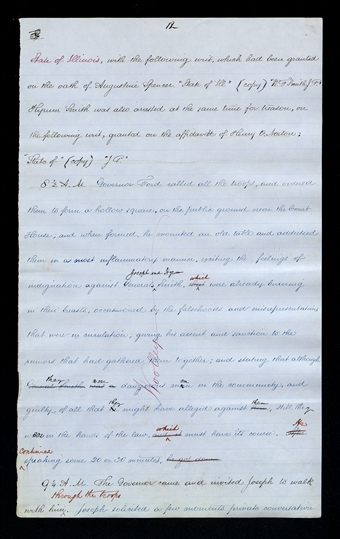 12
State of Illinois, with the following writ, which had been granted
on the oath of Augustine Spencer "State of Ill" (copy) "R. F. Smith J. P."
Hyrum Smith was also arrested at the same time for treason, on
the following writ, granted on the affidavit of Henry O. Norton:
"State of" (copy) "J P."
8½ A. M. Governor Ford called all the troops, and ordered
them to form a hollow square, on the public ground near the Court
House; and when formed, he mounted an old table and addressed
them in a most inflammatory manner, exciting the feelings of
Joseph and Hyrum which
indignation against General Smith, was already burning
in their breasts, occasioned by the falsehoods and misrepresentations
that were in circulation; giving his assent and sanction to the
rumors that had gathered them together; and stating that although
they were men
General Smith dangerous man in the community, and
they
guilty, of all that might have alleged against them, still they
which He
were in the hands of the law, must have its course.
continued
speaking some 20 or 30 minutes,
9¼ A. M. The Governor came and invited Joseph to walk
through the troops
with him. Joseph solicited a few moments private conversation